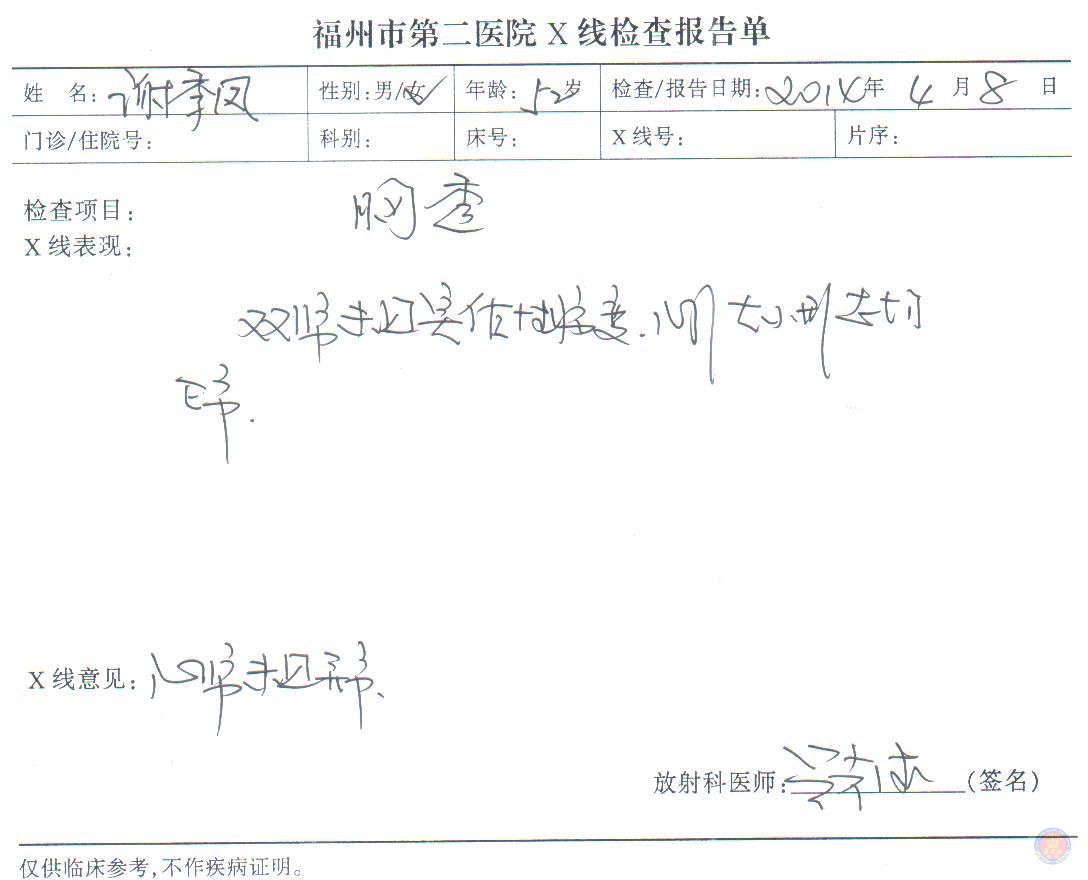 福州市第二医院 X 线检查报告单
姓 名: 谢季凤 性别:男/女 年龄: 52岁 检查/报告日期: 2014年 4 月 8 日
门诊/住院号: 科别: 床号: X 线号: 片序:
检查项目: 胸透
X 线表现:
双肺未见实质性病变.心膈大小形态均
正常.
X 线意见: 心肺未见异常.
放射科医师: (签名)
仅供临床参考,不作疾病证明。